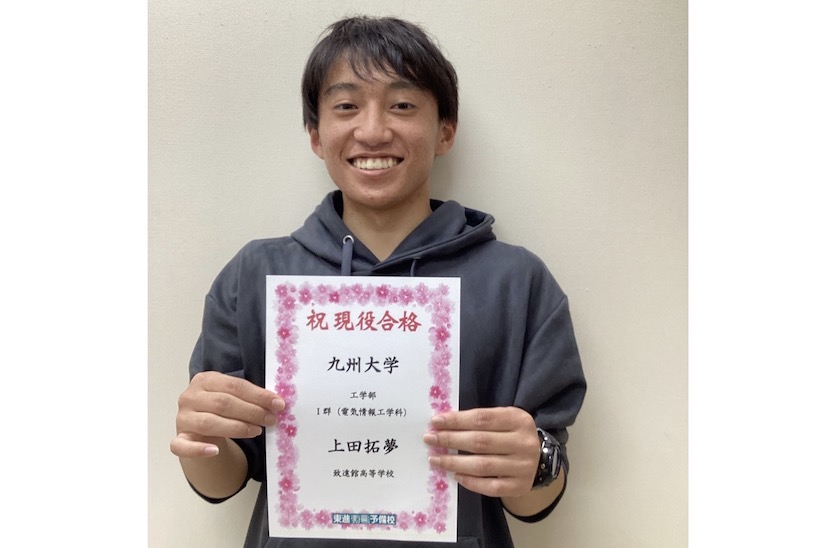 祝現役合格
九州大学
工学部
Ⅰ群（電気情報工学科）
上田拓夢
致遠館高等学校
東進 予備校